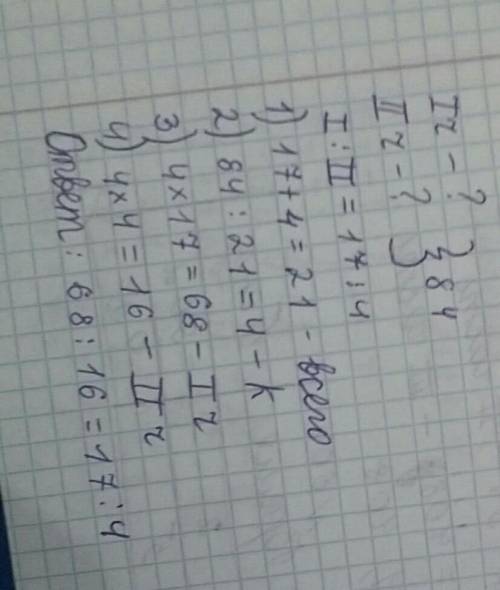 I г - ?
II г - ? } 84
I : II = 17 : 4
1) 17 + 4 = 21 - всего
2) 84 : 21 = 4 - k
3) 4 x 17 = 68 - I г
4) 4 x 4 = 16 - II г
Ответ : 68 : 16 = 17 : 4